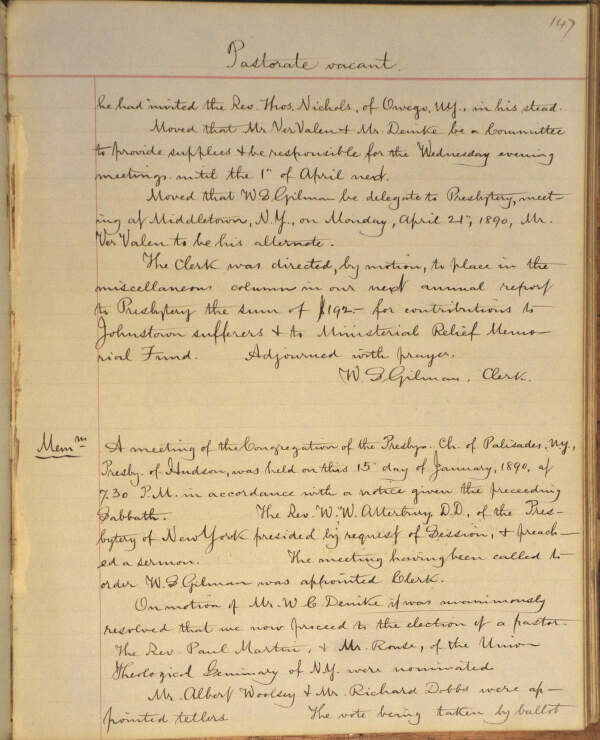 147
Pastorate vacant.
he had invited the Rev. Thos. Nichols, of Owego, N.Y., in his stead.
Moved that Mr. VerValen & Mr. Demke be a Committee
to provide supplies & be responsible for the Wednesday evening
meetings until the 1st of April next.
Moved that W.S. Gilman be delegate to Presbytery, meet-
ing at Middletown, N.Y., on Monday, April 21st, 1890, Mr.
VerValen to be his alternate.
The Clerk was directed, by motion, to place in the
miscellaneous column in our next annual report
to Presbytery the sum of $192- for contributions to
Johnstown sufferers & to Ministerial Relief Memo-
rial Fund. Adjourned with prayer.
W.S. Gilman, Clerk.
Mem^m
A meeting of the Congregation of the Presbyn. Ch. of Palisades, N.Y.,
Presby. of Hudson, was held on this 15 day of January, 1890, at
7.30 P.M. in accordance with a notice given the preceeding
Sabbath. The Rev. W.W. Atterbury, D.D., of the Pres-
bytery of New York presided by request of Session, & preach-
ed a sermon. The meeting having been called to
order W.S. Gilman was appointed Clerk.
On motion of Mr. W.C. Demke it was unanimously
resolved that we now proceed to the election of a pastor.
The Rev. Paul Martin, & Mr. Rouse, of the Union
Theological Seminary of N.Y. were nominated
Mr. Albert Woolsey & Mr. Richard Dobbs were ap-
pointed tellers The vote being taken by ballot